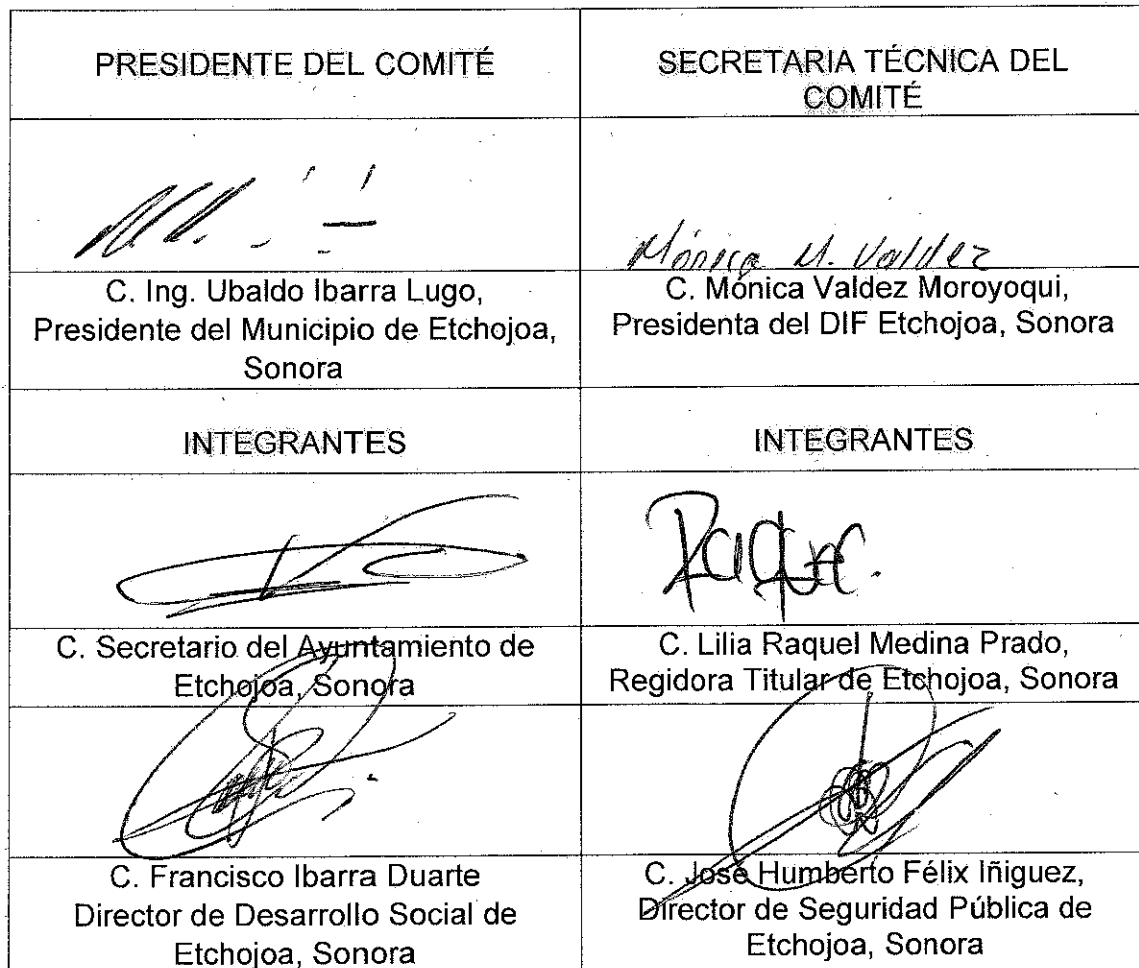 PRESIDENTE DEL COMITÉ
SECRETARIA TÉCNICA DEL
COMITÉ
Mónica M. Valdez
C. Ing. Ubaldo Ibarra Lugo,
Presidente del Municipio de Etchojoa,
Sonora
C. Mónica Valdez Moroyoqui,
Presidenta del DIF Etchojoa, Sonora
INTEGRANTES
INTEGRANTES
Raquel
C. Secretario del Ayuntamiento de
Etchojoa, Sonora
C. Lilia Raquel Medina Prado,
Regidora Titular de Etchojoa, Sonora
C. Francisco Ibarra Duarte
Director de Desarrollo Social de
Etchojoa, Sonora
C. José Humberto Félix Iñiguez,
Director de Seguridad Pública de
Etchojoa, Sonora